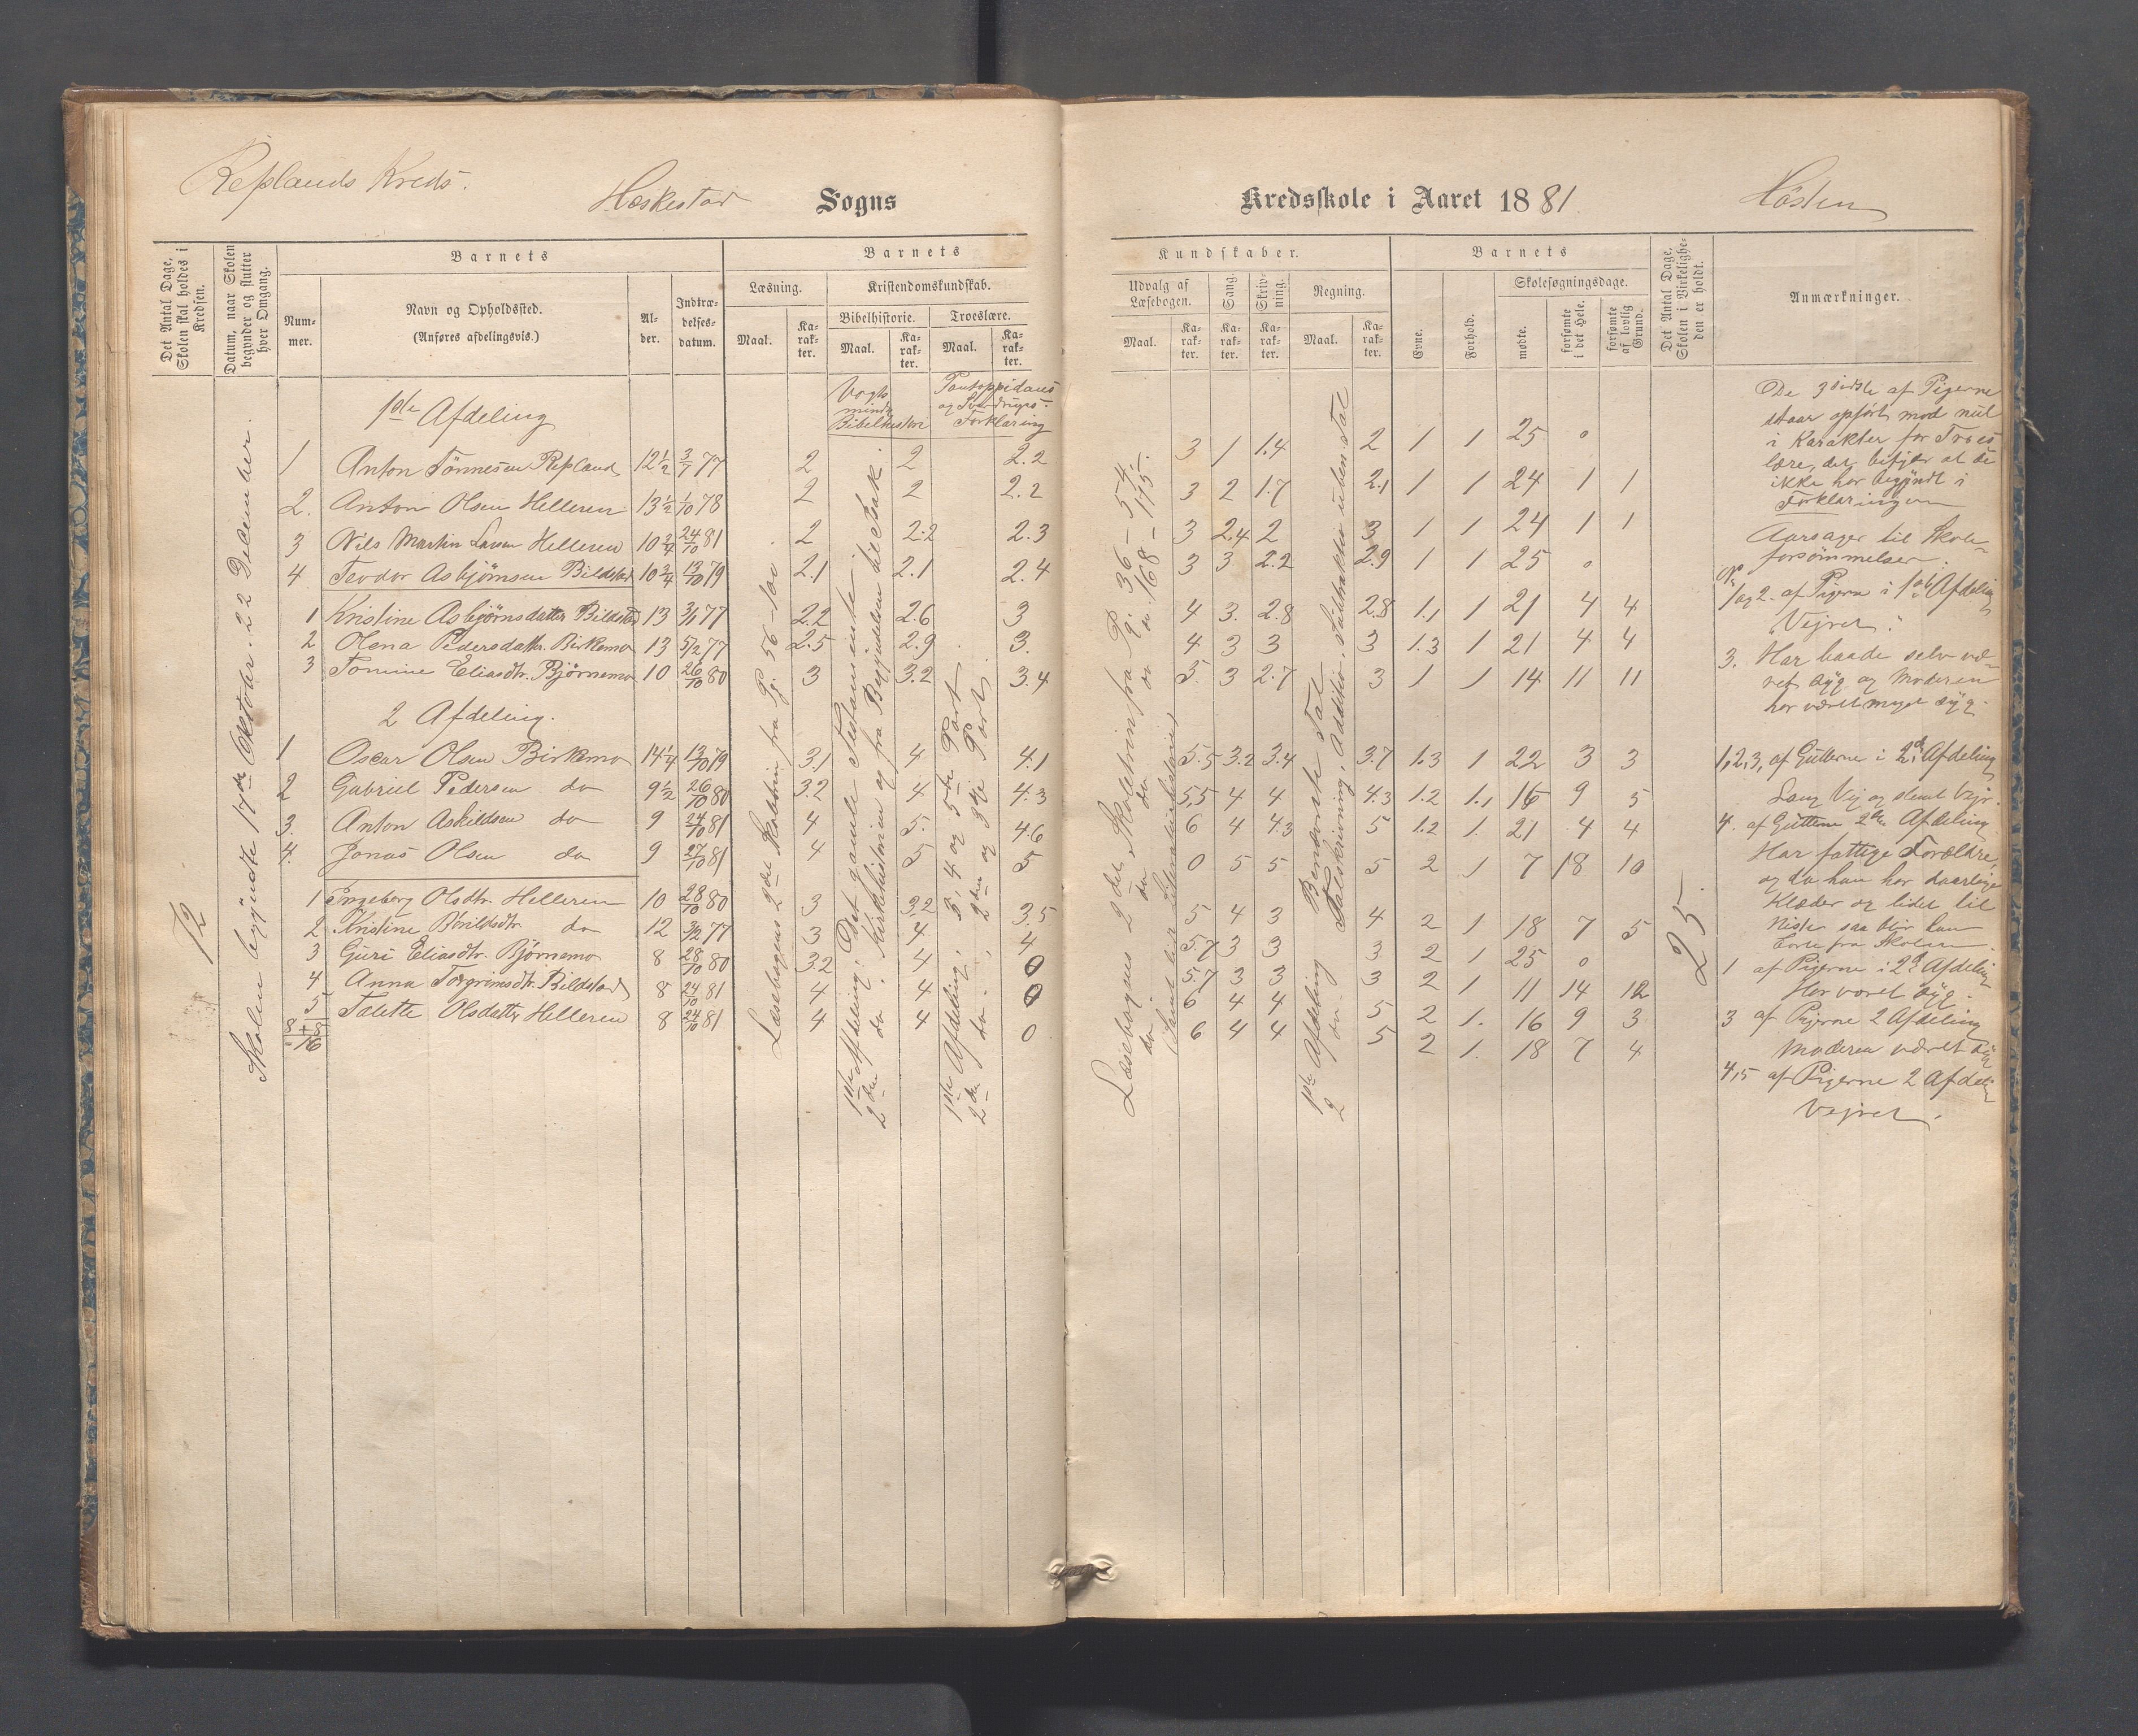 Replands Kreds.
Heskestad Sogns
Kredsskole i Aaret 1881
Hösten
Det Antal Dage, Skolen skal holdes i Kredsen.
Datum, naar Skolen begynder og slutter hver Omgang.
Barnets
Barnets
Nummer.
Navn og Opholdssted.
(Anføres afdelingsvis.)
Alder.
Indtrædelsesdatum.
Læsning.
Kristendomskundskab.
Bibelhistorie.
Troeslære.
Maal. Karakter. Maal. Karakter. Maal. Karakter.
Kundskaber.
Barnets
Udvalg af Læsebogen.
Sang.
Skrivning.
Regning.
Maal. Karakter. Karakter. Karakter. Maal. Karakter.
Evne.
Forhold.
Skolesøgningsdage.
mødte.
forsømte i det Hele.
forsømte af lovlig Grund.
Det Antal Dage, Skolen i Virkeligheden er holdt.
Anmærkninger.
72
Skolen begyndte 17de Oktober. 22 December.
Vogts mindre Bibelhistori
Pontoppidans og Sverdrups Forklaring
1ste Afdeling
1 Anton Tönnesen Repland 12 1/2 3/7 77 2 2 2.2 3 1 1.4 2 1 1 25 0
2. Anton Olsen Helleren 13 1/2 1/10 78 2 2 2.2 3 2 1.7 2.1 1 1 24 1 1
3 Nils Martin Larsen Helleren 10 3/4 24/10 81 2 2.2 2.3 3 2.4 2 3 1 1 24 1 1
4 Teodor Asbjørnsen Bildstad 10 3/4 13/10 79 2.1 2.1 2.4 3 3 2.2 2.9 1 1 25 0
1 Kristine Asbjørnsdatter Bildstad 13 3/1 77 2.2 2.6 3 4 3. 2.8 2.8 1.1 1 21 4 4
2 Olena Pedersdattr. Birkemo 13 5/2 77 2.5 2.9 3. 4 3 3 3 1.3 1 21 4 4
3 Tomine Eliasdtr. Bjørnemo 10 26/10 80 3 3.2 3.4 5. 3 2.7 3 1 1 14 11 11
2 Afdeling.
1 Oscar Olsen Birkemo 14 1/4 13/10 79 3.1 4 4.1 5.5 3.2 3.4 3.7 1.3 1 22 3 3
2 Gabriel Pedersen do 9 1/2 26/10 80 3.2 4 4.3 5.5 4 4 4.3 1.2 1.1 16 9 5
3. Anton Askildsen do 9 24/10 81 4 5. 4.6 6 4 4.3 5 1.2 1. 21 4 4
4. Jonas Olsen do 9 27/10 81 4 5 5 0 5 5 5 2 1 7 18 10
1 Ingeborg Olsdtr. Helleren 10 28/10 80 3 3.2 3.5 5 4 3 4 2 1 18 7 5
2 Kristine do 12 3/2 77 3 4 4 5.7 3 3 3 2 1 25 0
3 Guri Eliasdtr. Bjørnemo 8 28/10 80 3.2 4 0 5.7 3 3 3 2 1 11 14 12
4 Anna Torgrimsdtr. Bildstad 8 24/10 81 4 4 0 6 4 4 5 2 1. 16 9 3
5 Talette Olsdatter Helleren 8 24/10 81 4 4 0 6 4 4 5 2 1. 18 7 4
8 + 8 = 16
1ste Afdeling: Det gamle Testamente.
2den do. Kirkehistorien og fra Begyndelsen til Isak.
1ste Afdeling: 3, 4 og 5te Part
2den do. 2den og 3dje Part.
1ste Afdeling Benævnte Tal
2 do. Talskrivning, Addition, Subtraktion uben. Tal
25
De 3 sidste af Pigerne
staar opført mod nul
i Karakter for Troes
lære, det betyder at de
ikke har begyndt i
Forklaringen
Aarsager til Skole-
forsömmelser.
No 1 og 2. af Pigerne i 1ste Afdeling
"Vejret."
3. Har baade selv væ-
ret syg og Moderen
har været meget syg.
1,2,3, af Gutterne i 2d. Afdeling
Lang Vej og slemt Vejr.
4. af Gutterne 2den Afdeling
Har fattige Forældre,
og da han har daarlige
Klæder og lidet til
Niste saa blir han
borte fra Skolen.
1 af Pigerne i 2d. Afdeling
Har været syg.
3 af Pigerne 2 Afdeling
Moderen været syg
4,5 af Pigerne 2 Afdeling
Vejret.